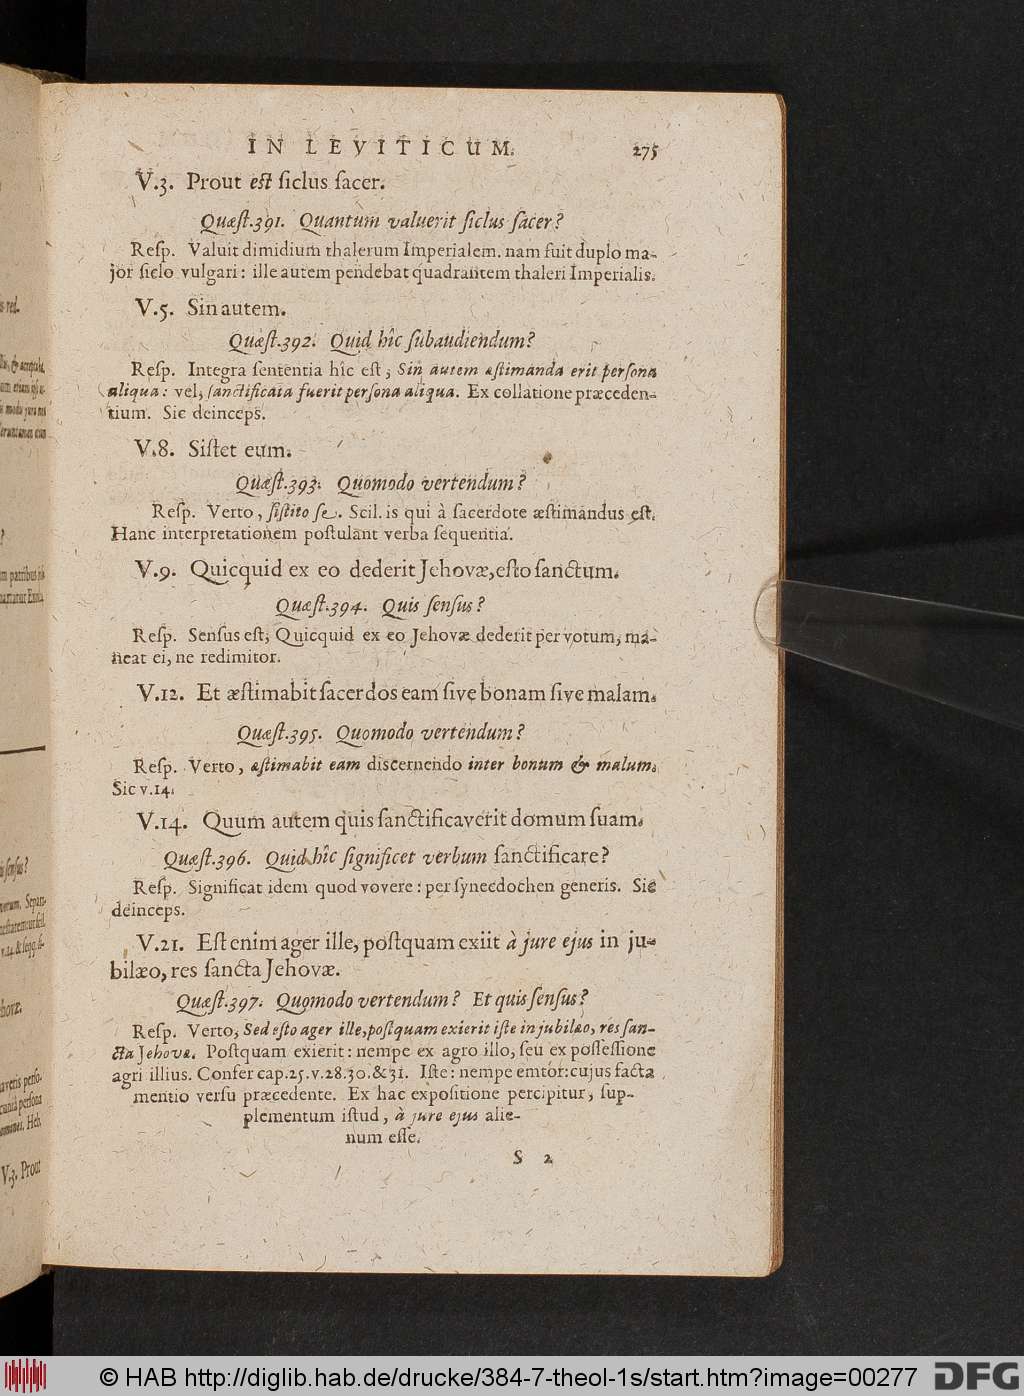 IN LEVITICUM. 275
V.3. Prout est siclus sacer.
Quæst.391. Quantum valuerit siclus sacer?
Resp. Valuit dimidium thalerum Imperialem. nam fuit duplo ma-
jor siclo vulgari: ille autem pendebat quadrantem thaleri Imperialis.
V.5. Sin autem.
Quæst.392. Quid hîc subaudiendum?
Resp. Integra sententia hîc est, Sin autem æstimanda erit persona
aliqua: vel, sanctificata fuerit persona aliqua. Ex collatione præceden-
tium. Sic deinceps.
V.8. Sistet eum.
Quæst.393. Quomodo vertendum?
Resp. Verto, sistito se. Scil. is qui à sacerdote æstimandus est.
Hanc interpretationem postulant verba sequentia.
V.9. Quicquid ex eo dederit Jehovæ, esto sanctum.
Quæst.394. Quis sensus?
Resp. Sensus est, Quicquid ex eo Jehovæ dederit per votum, ma-
neat ei, ne redimitor.
V.12. Et æstimabit sacerdos eam sive bonam sive malam.
Quæst.395. Quomodo vertendum?
Resp. Verto, æstimabit eam discernendo inter bonum & malum.
Sic v.14.
V.14. Quum autem quis sanctificaverit domum suam.
Quæst.396. Quid hîc significet verbum sanctificare?
Resp. Significat idem quod vovere: per synecdochen generis. Sic
deinceps.
V.21. Est enim ager ille, postquam exiit à jure ejus in ju-
bilæo, res sancta Jehovæ.
Quæst.397. Quomodo vertendum? Et quis sensus?
Resp. Verto, Sed esto ager ille, postquam exierit iste in jubilæo, res san-
cta Jehovæ. Postquam exierit: nempe ex agro illo, seu ex possessione
agri illius. Confer cap.25.v.28.30.&31. Iste: nempe emtor: cujus facta
mentio versu præcedente. Ex hac expositione percipitur, sup-
plementum istud, à jure ejus alie-
num esse.
S 2
V.3. Prout
© HAB http://diglib.hab.de/drucke/384-7-theol-1s/start.htm?image=00277
DFG